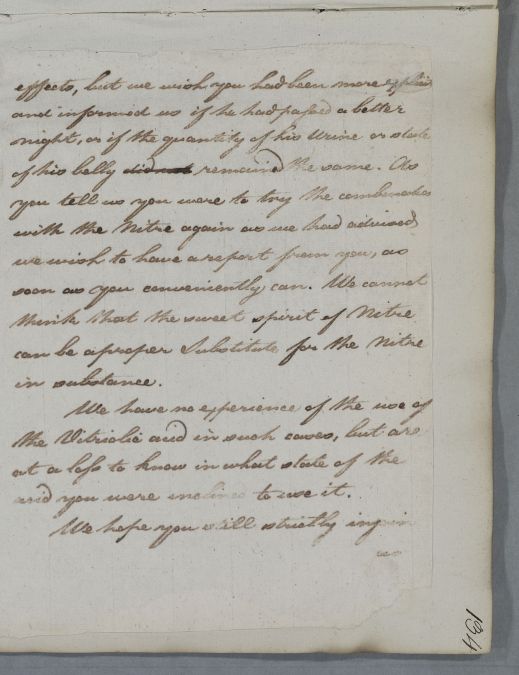 effects, but we wish you had been more explicit
and informed us if he had passed a better
night, or if the quantity of his Urine or state
of his belly did not remained the same. As
you tell us you were to try the combination
with the Nitre again as we had advised,
we wish to have a report from you, as
soon as you conveniently can. We cannot
think that the sweet spirit of Nitre
can be a proper Substitute for the Nitre
in substance.
We have no experience of the use of
the Vitriolic acid in such cases, but are
at a loss to know in what state of the
acid you were inclined to use it.
We hope you will strictly injoin
194